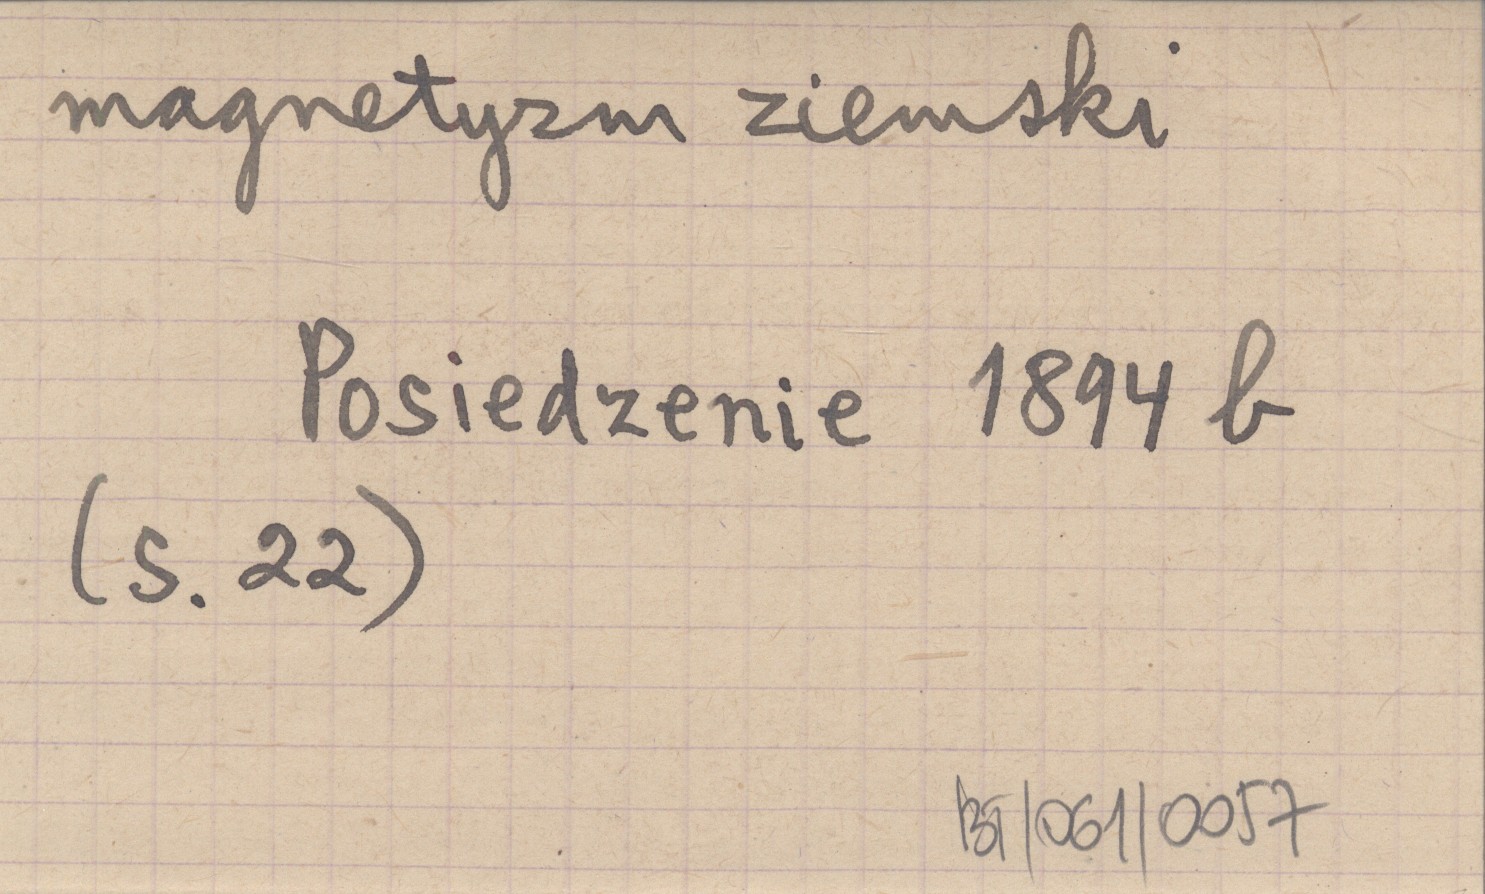 magnetyzm ziemski
Posiedzenie 1894 b
(s. 22)
BT/061/0057